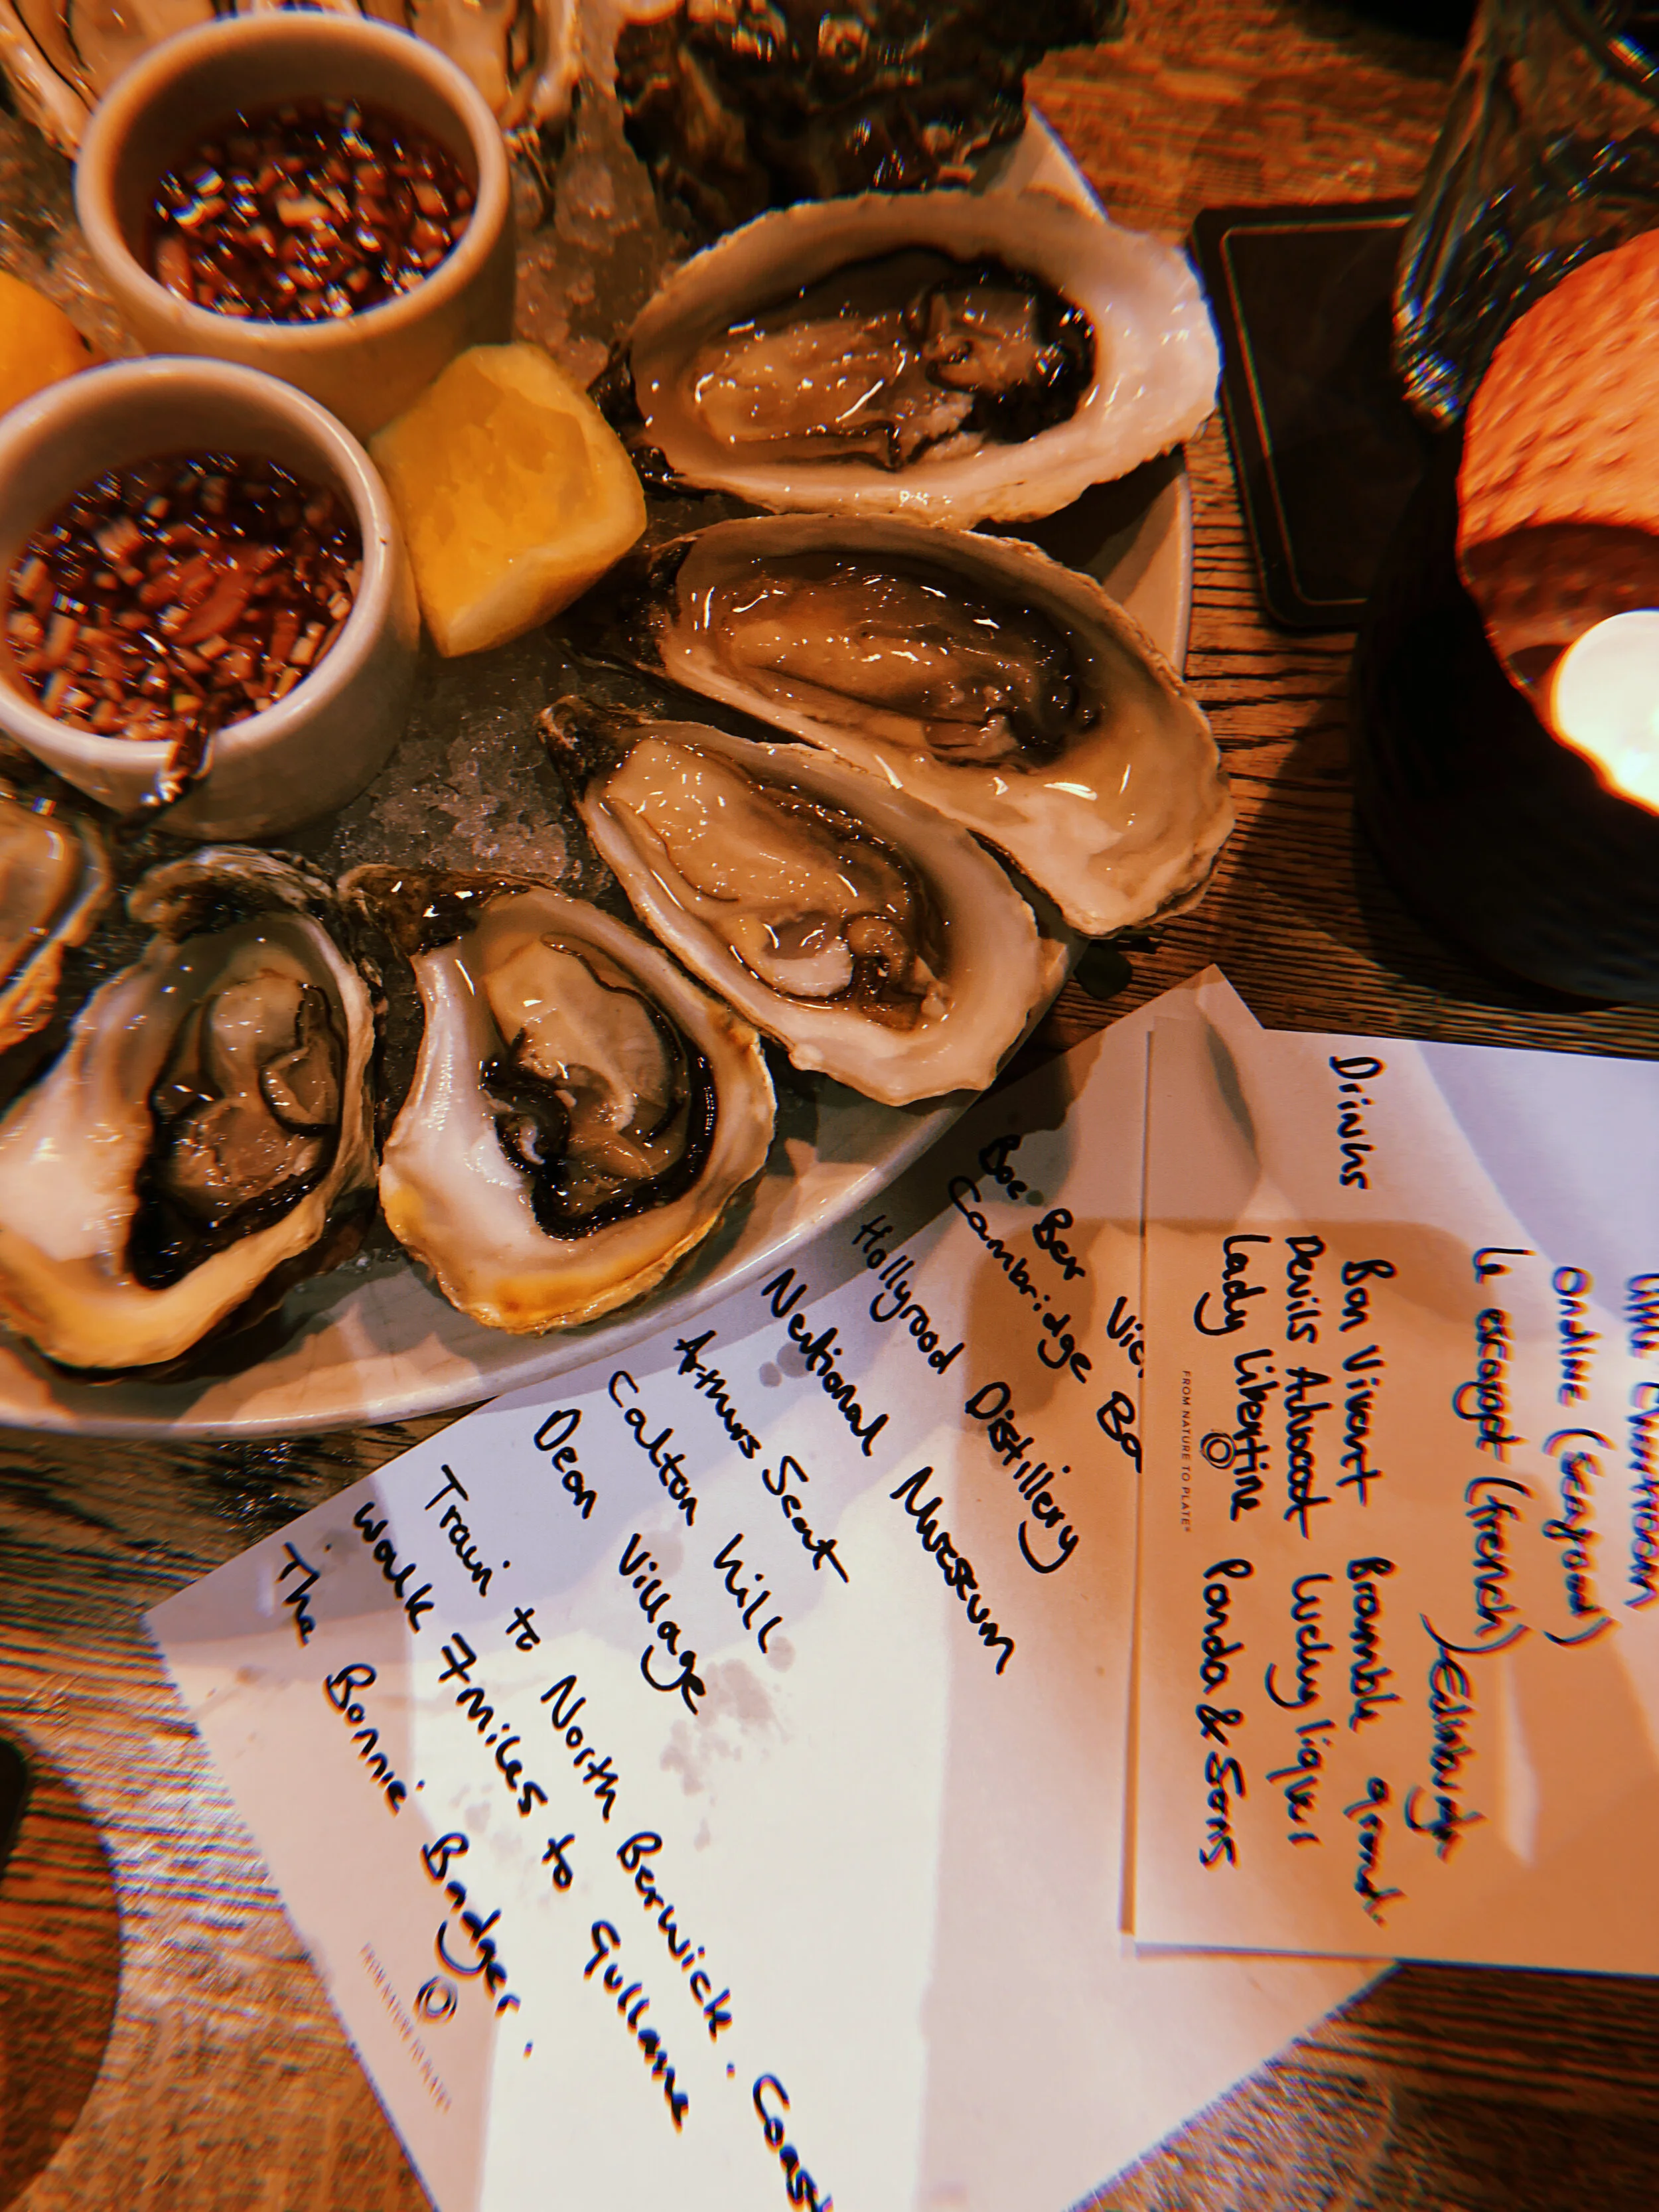 Ondine (Seafood)
Le escargot (french)
Drinks
Bon Vivant
Bramble
Devils Advocat
Lucky liquer
Lady Libertine
Panda & Sons
FROM NATURE TO PLATE
Vic
Cambridge Ba
Hollyrood Distillery
National Museum
Arthurs Seat
Calton hill
Dean Village
Train to North Berwick. Coast
walk 7miles to Gullane
The Bonnie Badger.
FROM NATURE TO PLATE